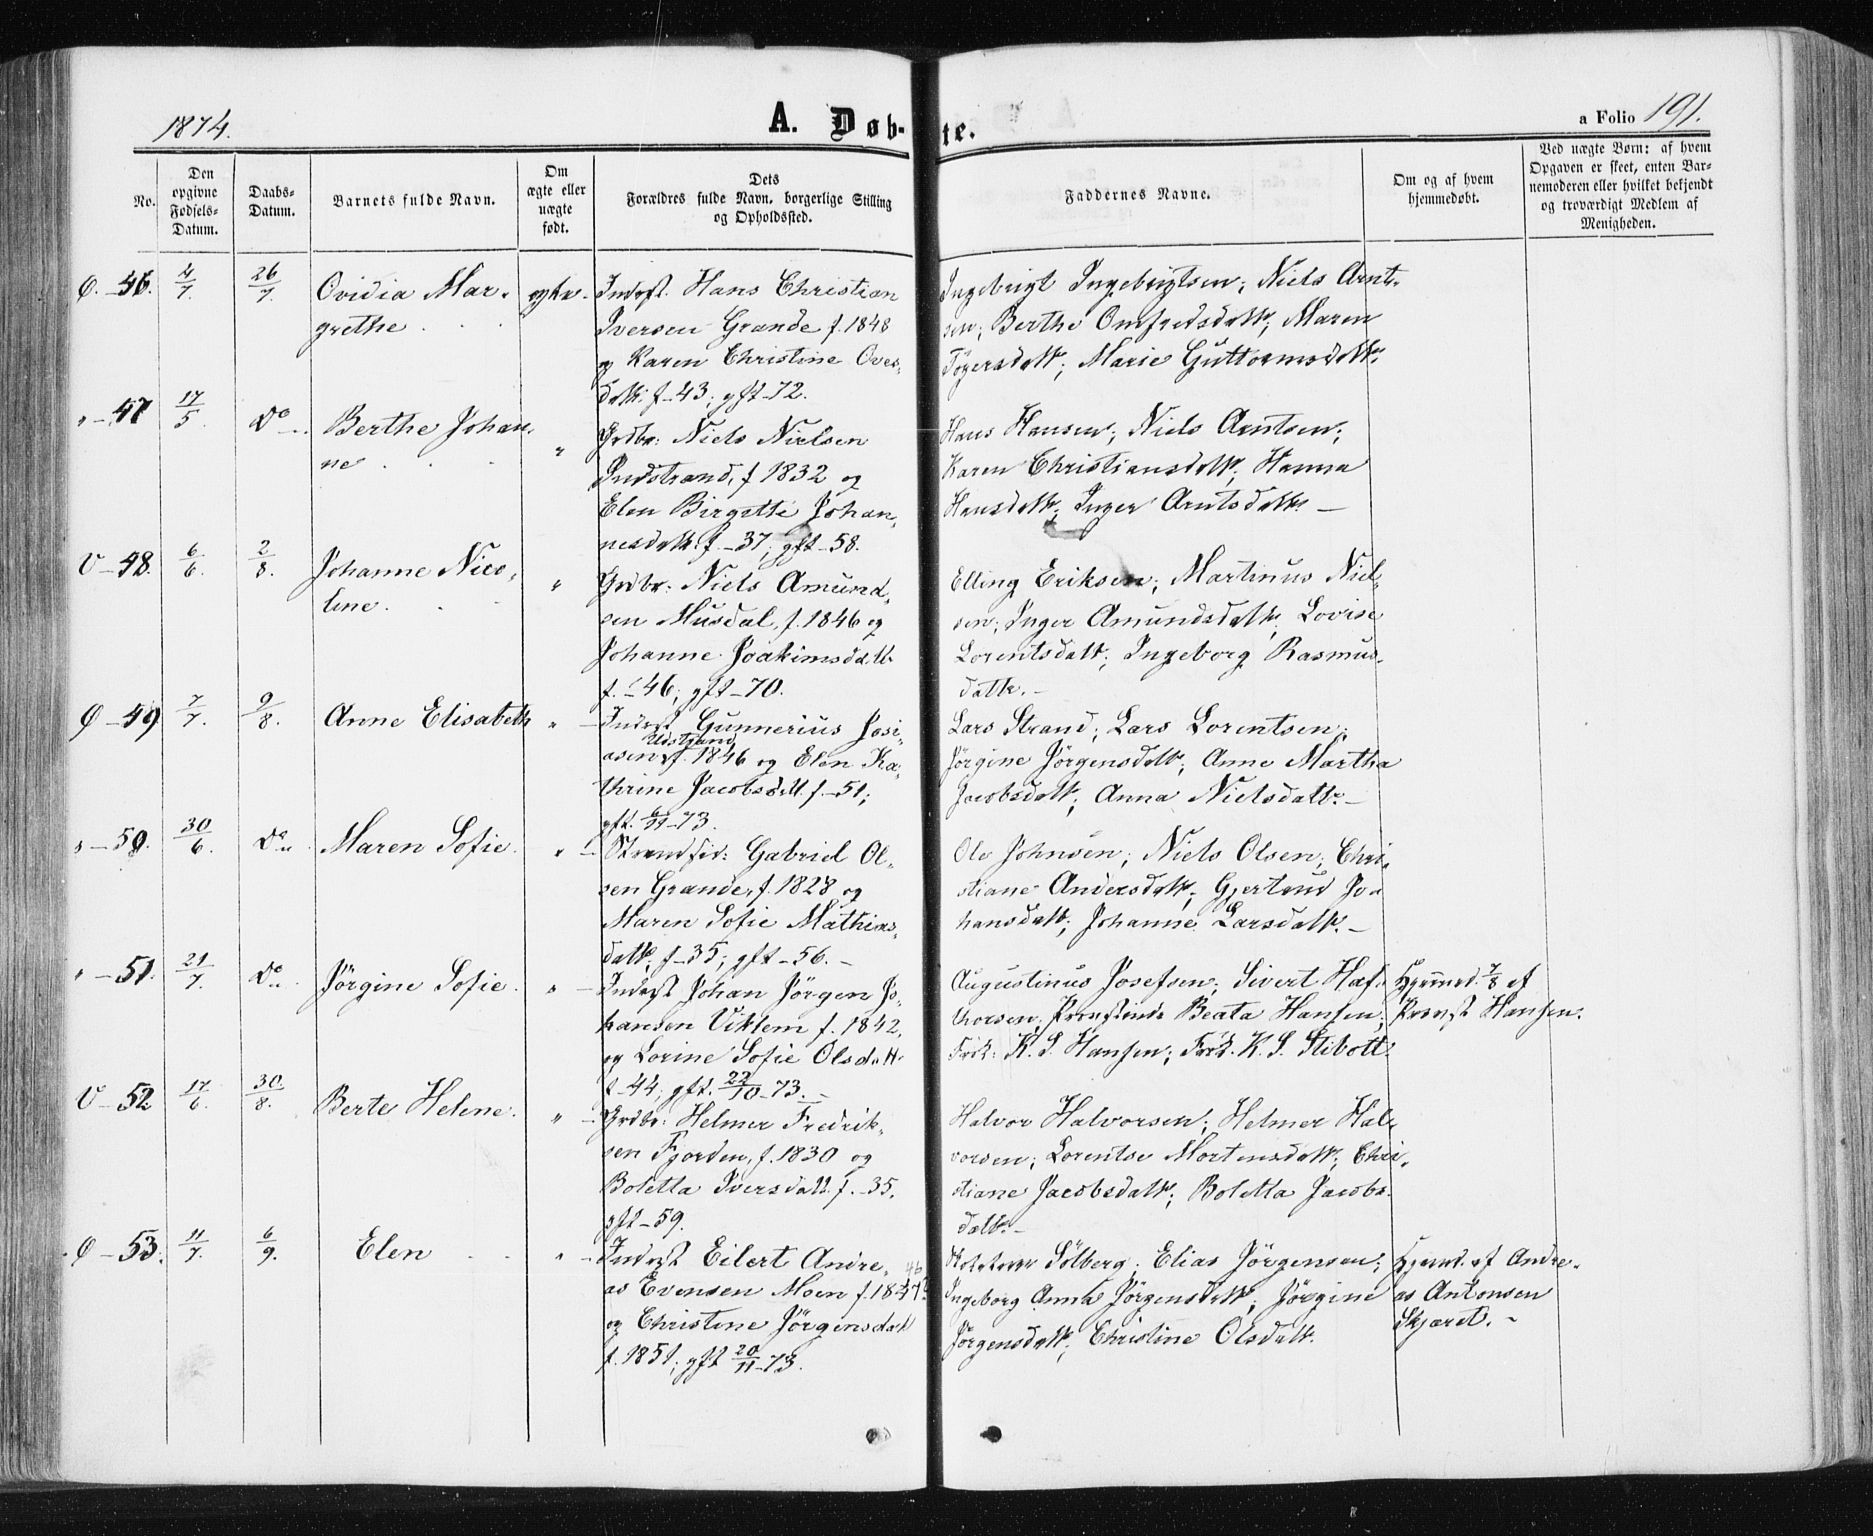 1874.
A. Døb-
te.
a Folio 191.
No.
Den
opgivne
Fødsels-
Datum.
Daabs-
Datum.
Barnets fulde Navn.
Om
ægte eller
uægte
født.
Dets
Forældres fulde Navn, borgerlige Stilling
og Opholdssted.
Faddernes Navne.
Om og af hvem
hjemmedøbt.
Ved uægte Børn: af hvem
Opgaven er skeet, enten Bar-
nemoderen eller hvilket bekjendt
og troværdigt Medlem af
Menigheden.
Ø. 46. 4/7. 26/7. Ovidia Mar-
grethe
ægte
Inderst. Hans Christian
Iversen Grande f. 1848
og Karen Christine Oves-
datt: f-43; gft-72.
Ingebrigt Ingebrigtsen; Niels Arnt-
sen; Berthe Omfredsdatt; Maren
Tøgersdatt; Marie Guttormsdatt.
" 47 17/5. Do Berthe Johan-
ne
"
Grdbr: Niels Nielsen
Indstrand, f 1832 og
Elen Birgitte Johan-
nesdatt: f-37; gft-58.
Hans Hansen; Niels Arntsen;
Karen Christiansdatt; Hanna
Hansdatt; Inger Arntsdatt. -
V-48. 6/6. 2/8. Johanne Nico-
line.
"
Grdbr: Niels Amund-
sen Musdal, f. 1846 og
Johanne Joakimsdatt
f. -46; gft-70.
Elling Eriksen; Martinus Niel-
sen; Inger Amundsdatt; Lovise
Lorentsdatt; Ingeborg Rasmus-
datt. -
Ø-49. 7/7. 9/8. Anne Elisabeth
"
Inderst Gunnerius Josi-
Udstrand
asen f. 1846 og Elen Ka-
thrine Jacobsdatt. f-51;
gft. 6/11-73.
Lars Strand; Lars Lorentsen;
Jørgine Jørgensdatt; Anne Martha
Jacobsdatt; Anna Nielsdatt. -
" 50. 30/6. Do Maren Sofie.
"
Strandsid: Gabriel Ol-
sen Grande, f. 1828 og
Maren Sofie Mathias-
datt; f-35; gft-56. -
Ole Johnsen; Niels Olsen; Chri-
stiane Andersdatt; Gjertrud Jo-
hansdatt; Johanne Larsdatt. -
" 51. 21/7. Do Jørgine Sofie.
"
Inderst Johan Jørgen Jo-
hansen Viklem f. 1842,
og Lorine Sofie Olsdatt.
f-44; gft. 22/10-73. -
Augustinus Josefsen; Sivert Haf-
thorsen; Provstinde Beata Hansen;
Frk: K. S. Hansen; Frk. K. S. Stibolt.
Hjemmed. 7/8 af
Provst Hansen.
V-52 17/6. 30/8. Berte Helene.
"
Grdbr: Helmer Fredrik-
sen Fjorden, f. 1830 og
Boletta Iversdatt. f. -35.
gft-59.
Halvor Halvorsen; Helmer Hal-
vorsen; Lorentse Mortensdatt; Chri-
stiane Jacobsdatt; Boletta Jacobs-
datt. -
Ø-53. 11/7. 6/9. Elen
"
Inderst Eilert Andre-
as Evensen Moen f. 1847? 46
og Christine Jørgensdatt
f. 1851; gft 20/11-73.
Sølberg; Elias Jørgensen;
Ingeborg Anna Jørgensdatt; Jørgine
Jørgensdatt; Christine Olsdatt.
Hjemmd. af Andre-
as Antonsen
Skjæret. -